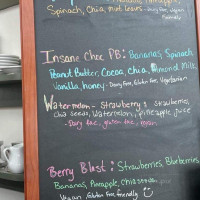 Pineapple,
Spinach, Chia, mint leaves - Dairy Free, vegan
Insane Choc PB: Bananas, Spinach
Peanut Butter, Cocoa, chia, Almond Milk,
Vanilla, honey - Dairy Free, Gluten Free, Vegetarian
Watermelon - Strawberry & Strawberries,
chia seeds, Watermelon, pineapple juice
- Dairy free, gluten free, vegan
Berry Blast: Strawberries, Blueberries
Bananas, Pineapple, Chia seeds, juice
Vegan, Gluten Free, friendly